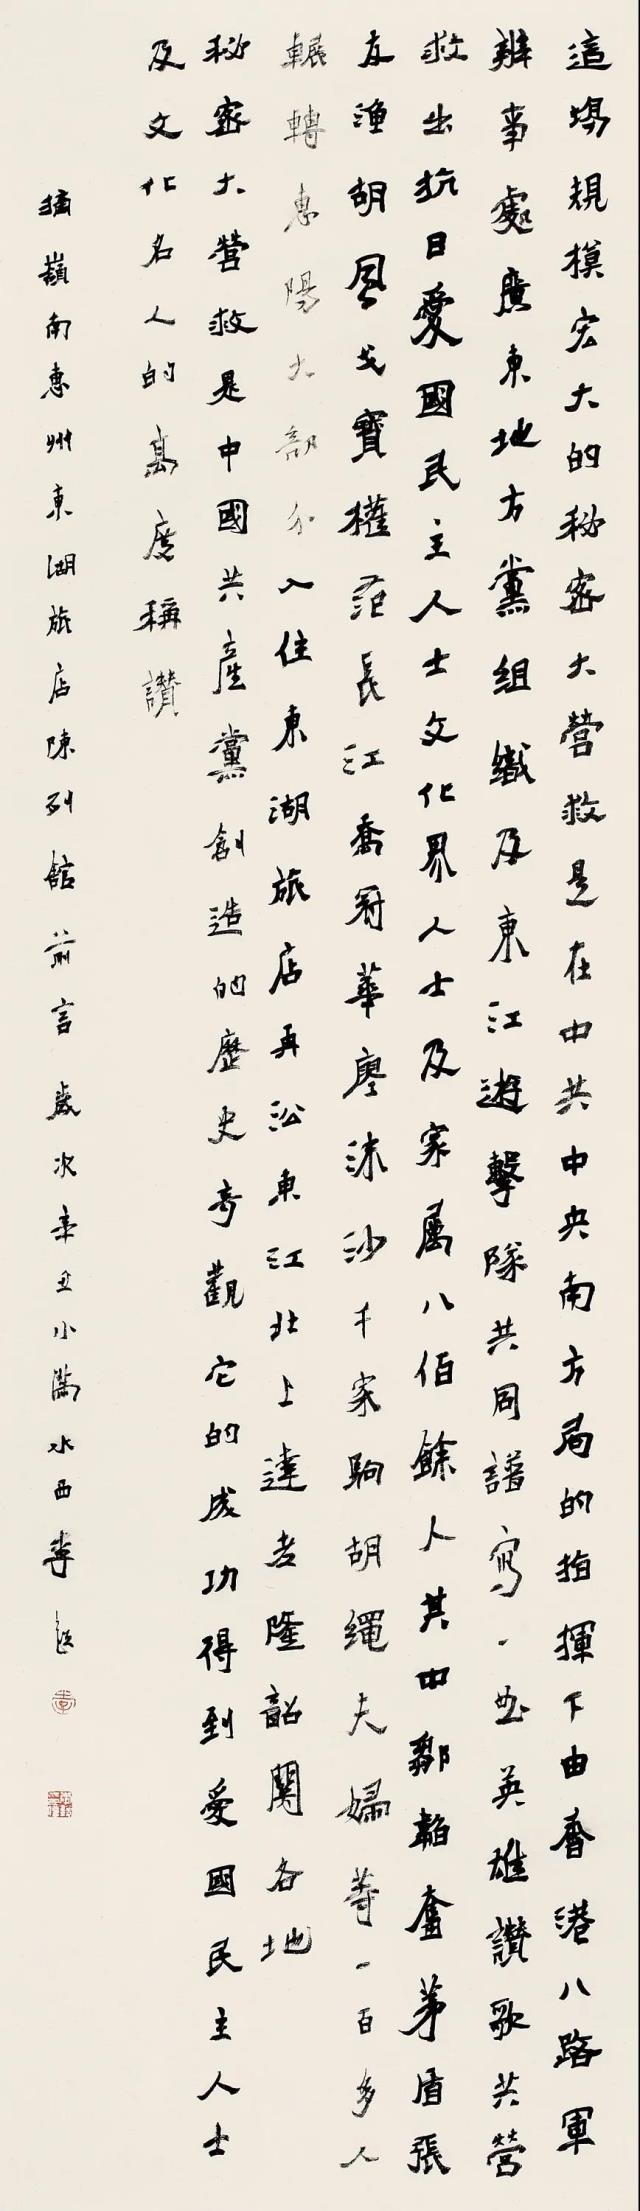 這場規模宏大的秘密大營救是在中共中央南方局的指揮下由香港八路軍
辦事處廣東地方黨組織及東江遊擊隊共同譜寫一曲英雄讚歌共營
救出抗日愛國民主人士文化界人士及家属八佰餘人其中鄒韜奮茅盾張
友漁胡風戈寶權范長江喬冠華廖沫沙千家駒胡繩夫婦等一百多人
輾轉惠陽大部分入住東湖旅店再沿東江北上達老隆韶關各地
秘密大營救是中國共產黨創造的歷史奇觀它的成功得到愛國民主人士
及文化名人的高度稱讚
摘嶺南惠州東湖旅店陳列館前言歲次辛丑小滿水西李